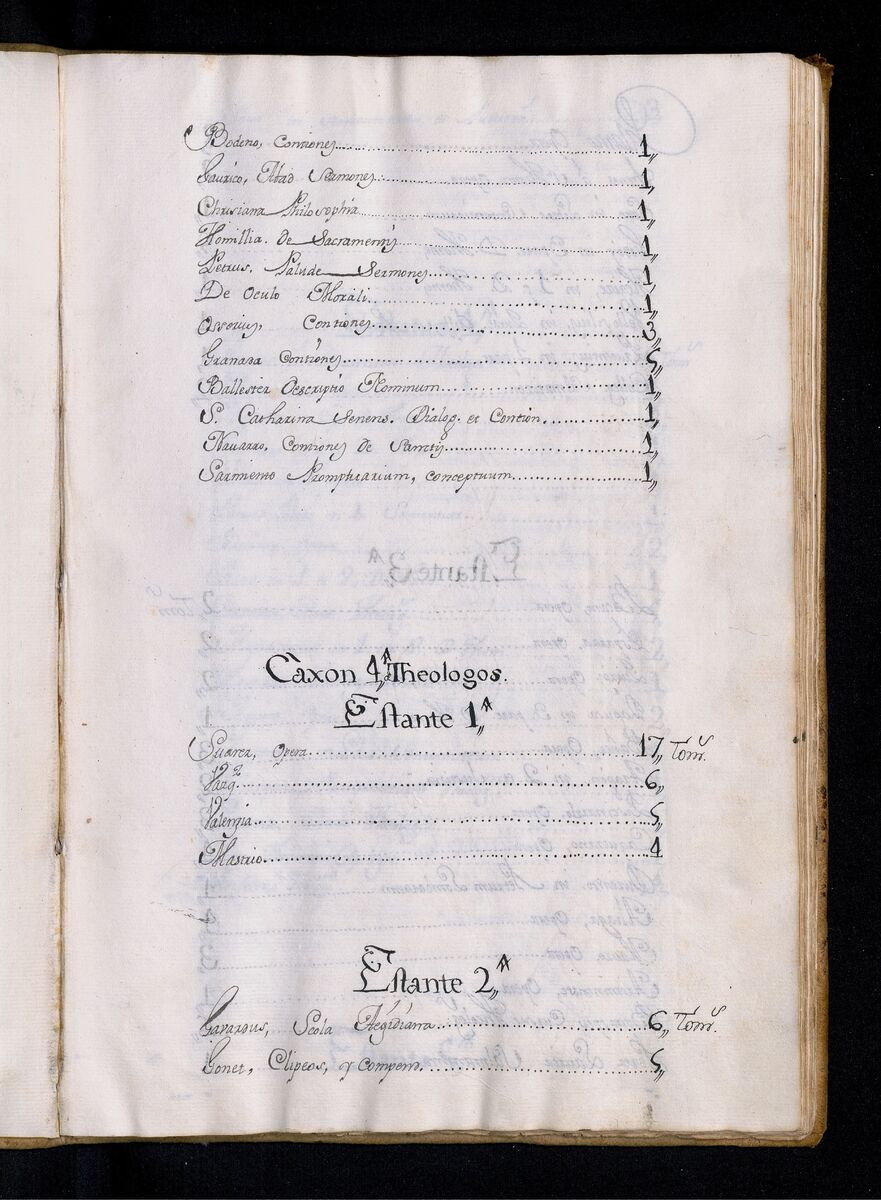 Bodeno, Contiones 1,,
Gaurico, Abad Sermones 1,,
Chrisiana Philosophia 1,,
Homillia. de Sacramentis 1,,
Petrus, Palude Sermones 1,,
De Oculo Morali 1,,
Ossorius, Contiones 3,,
Granada Contiones 5,,
Ballester Descriptio Nominum 1,,
S. Catharina Senens. Dialog. et Contion. 1,,
Navarro, Contiones de Sanctis 1,,
Sarmiento Promptuarium, conceptuum 1,,
Caxon 4,,ᴬ Theologos.
Estante 1,,ᴬ
Suarez, Opera 17,, Tomˢ.
Vazqᶻ 6,,
Valençia 5,,
Mastrio 4
Estante 2,,ᴬ
Gavardus, Scola Aegidiana 6,, Tomˢ.
Gonet, Clipeos, y compen. 5,,